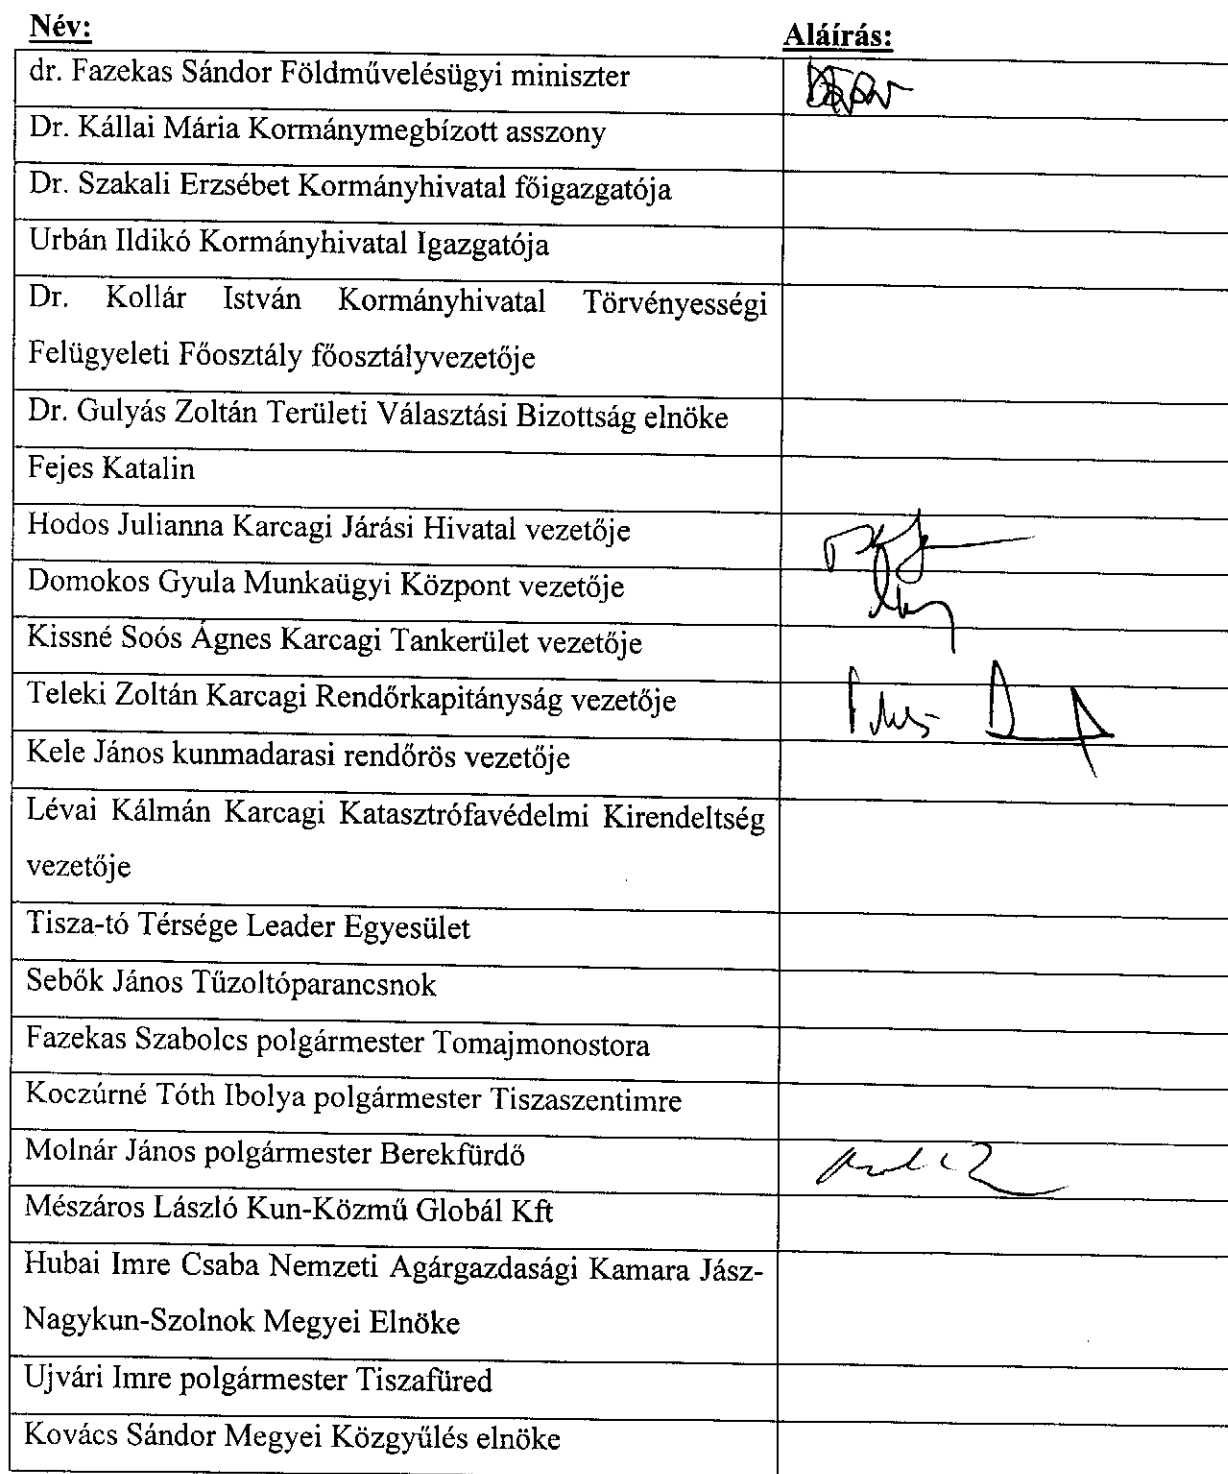 Név:
Aláírás:
dr. Fazekas Sándor Földművelésügyi miniszter
Dr. Kállai Mária Kormánymegbízott asszony
Dr. Szakali Erzsébet Kormányhivatal főigazgatója
Urbán Ildikó Kormányhivatal Igazgatója
Dr. Kollár István Kormányhivatal Törvényességi
Felügyeleti Főosztály főosztályvezetője
Dr. Gulyás Zoltán Területi Választási Bizottság elnöke
Fejes Katalin
Hodos Julianna Karcagi Járási Hivatal vezetője
Domokos Gyula Munkaügyi Központ vezetője
Kissné Soós Ágnes Karcagi Tankerület vezetője
Teleki Zoltán Karcagi Rendőrkapitányság vezetője
Kele János kunmadarasi rendőrös vezetője
Lévai Kálmán Karcagi Katasztrófavédelmi Kirendeltség
vezetője
Tisza-tó Térsége Leader Egyesület
Sebők János Tűzoltóparancsnok
Fazekas Szabolcs polgármester Tomajmonostora
Koczúrné Tóth Ibolya polgármester Tiszaszentimre
Molnár János polgármester Berekfürdő
Mészáros László Kun-Közmű Globál Kft
Hubai Imre Csaba Nemzeti Agárgazdasági Kamara Jász-
Nagykun-Szolnok Megyei Elnöke
Ujvári Imre polgármester Tiszafüred
Kovács Sándor Megyei Közgyűlés elnöke